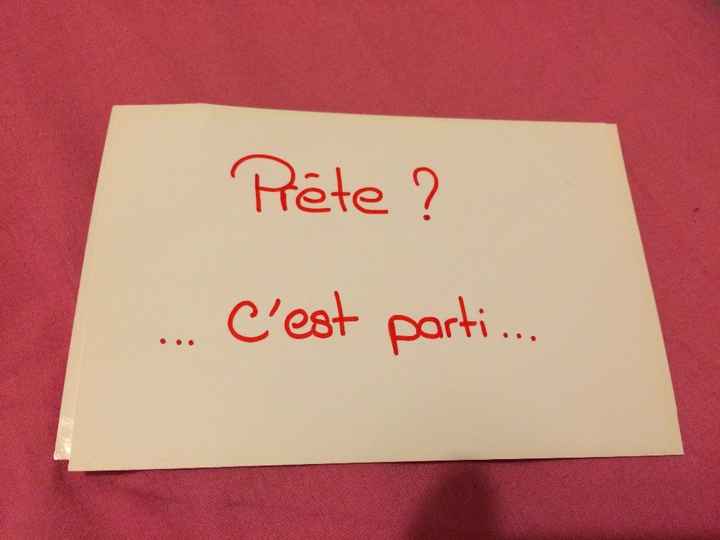 Prête ?
... C'est parti ...